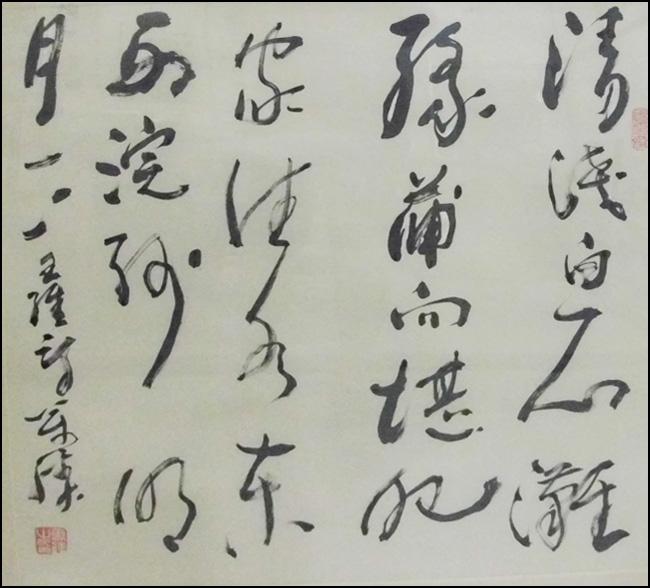 清淺白石灘
綠蒲向堪把
家住水東
西浣紗明
月下王維詩